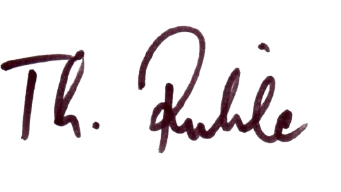 Th. Ruhle